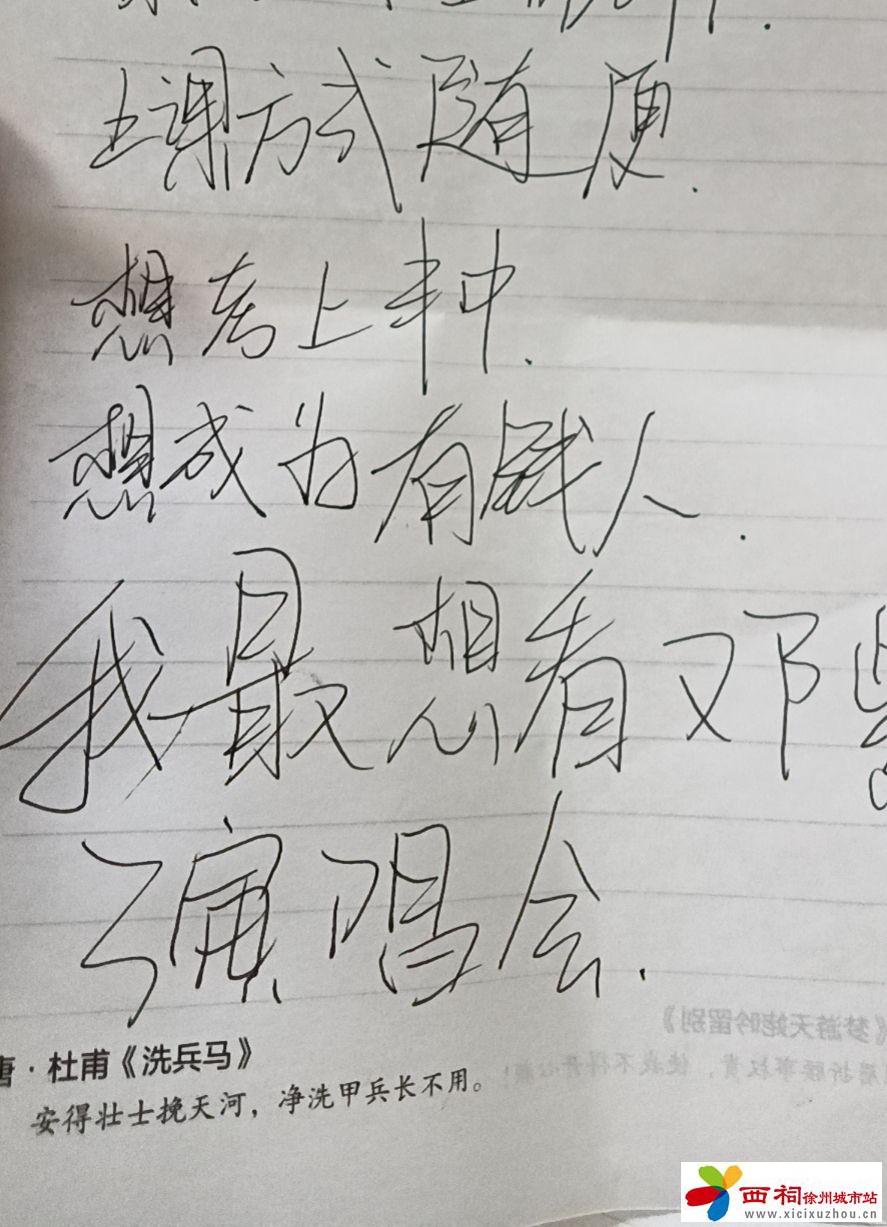 上课方式随便.
想考上丰中.
想成为有钱人.
我最想看邓紫
演唱会.
唐·杜甫《洗兵马》
安得壮士挽天河，净洗甲兵长不用。
《梦游天姥吟留别》
西祠徐州城市站
www.xicixuzhou.cn